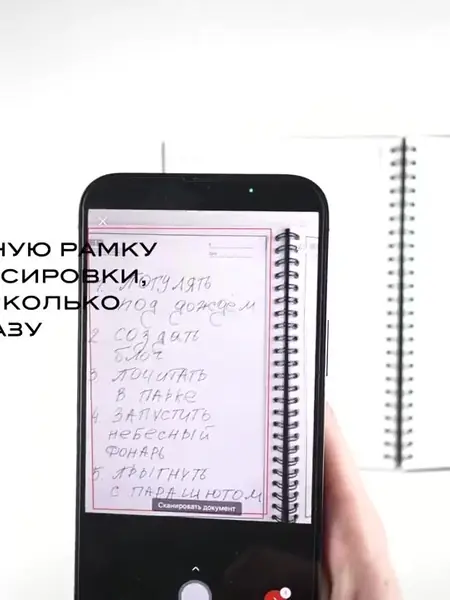 НУЮ РАМКУ
СИРОВКИ,
КОЛЬКО
АЗУ
1. ПОГУЛЯТЬ
ПОД ДОЖДЁМ
2. СОЗДАТЬ
БЛОЧ
3 ПОЧИТАТЬ
В ПАРКЕ
4. ЗАПУСТИТЬ
НЕБЕСНЫЙ
ФОНАРЬ
5. ПРЫГНУТЬ
С ПАРАШЮТОМ
Сканировать документ